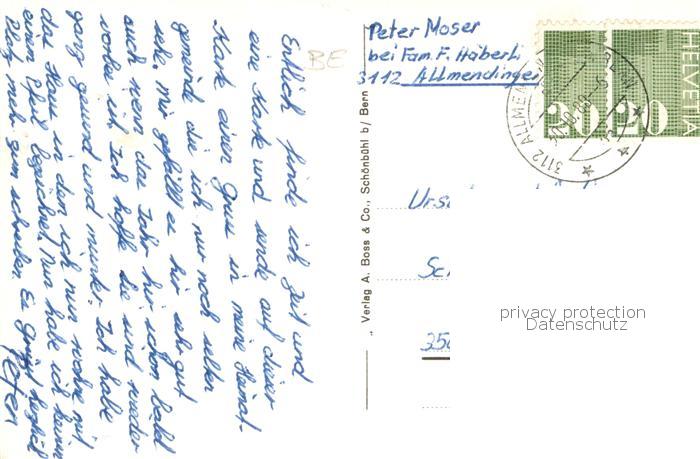 Endlich finde ich Zeit und
eine Karte und sende auf dieser
Karte einen Gruss in meine Heimat-
gemeinde die ich nur noch selten
sehe, mir gefällt es hir sehr gut
auch wenn das Jahr hir schon bald
vorbei ist. Ich hoffe sie sind wieder
ganz gesund und munter. Ich habe
das Haus in dem ich nun wohne mit
einem Pfeil bezeichnet. Nun habe ich keinen
Platz mehr zum schreiben. Es grüsst herzlich
Peter
BE
Peter Moser
bei Fam. F. Häberli
3112 Allmendingen
Verlag A. Boss & Co., Schönbühl b/ Bern
HELVETIA
20 20
3112 ALLMEN
Urs
Sc
350
privacy protection
Datenschutz